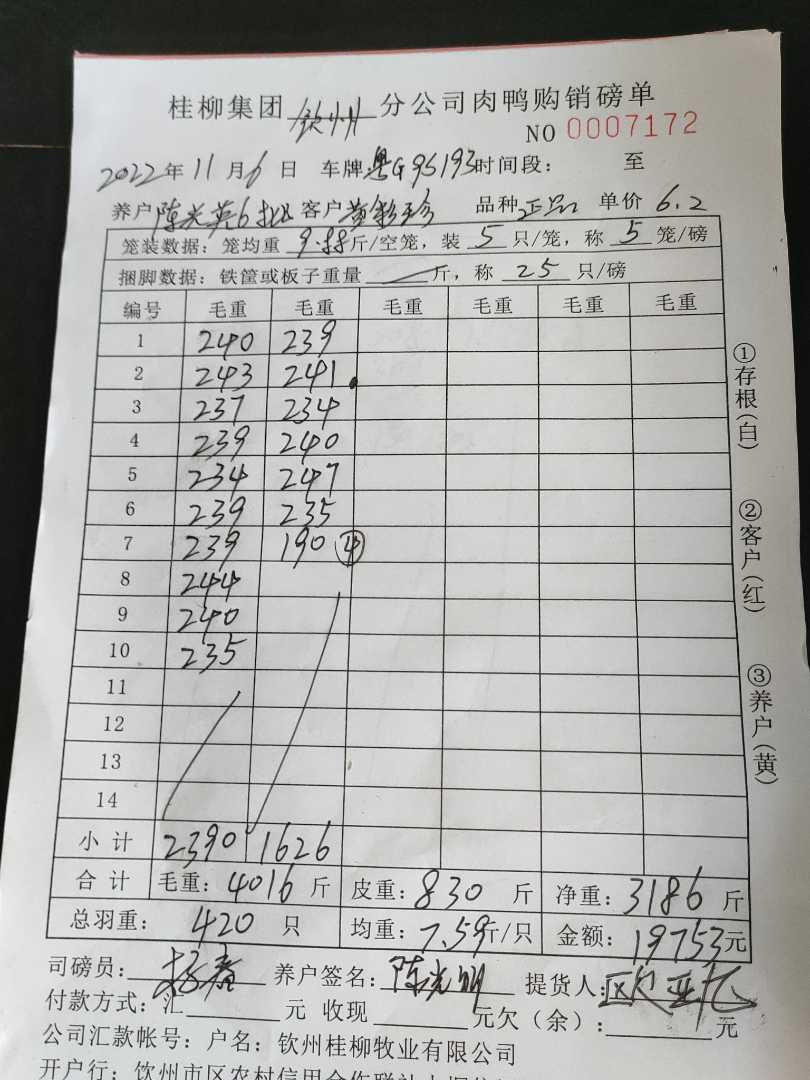 桂柳集团 钦州 分公司肉鸭购销磅单
NO 0007172
2022年11月6日 车牌粤G95193时间段： 至
养户陈光英6批 客户黄彩珍 品种正品 单价 6.2
笼装数据：笼均重 9.88斤/空笼，装 5 只/笼，称 5 笼/磅
捆脚数据：铁筐或板子重量 斤，称 25 只/磅
编号 毛重 毛重 毛重 毛重 毛重 毛重
1 240 239
2 243 241
3 237 234
4 239 240
5 234 247
6 239 235
7 239 190 ④
8 244
9 240
10 235
11
12
13
14
小计 2390 1626
合计 毛重：4016 斤 皮重：830 斤 净重：3186 斤
总羽重： 420 只 均重：7.59斤/只 金额：19753元
①存根(白)
②客户(红)
③养户(黄)
司磅员： 养户签名：陈光明 提货人：欧亚飞
付款方式：汇 元 收现 元欠（余）： 元
公司汇款帐号：户名：钦州桂柳牧业有限公司
开户行：钦州市区农村信用合作联社